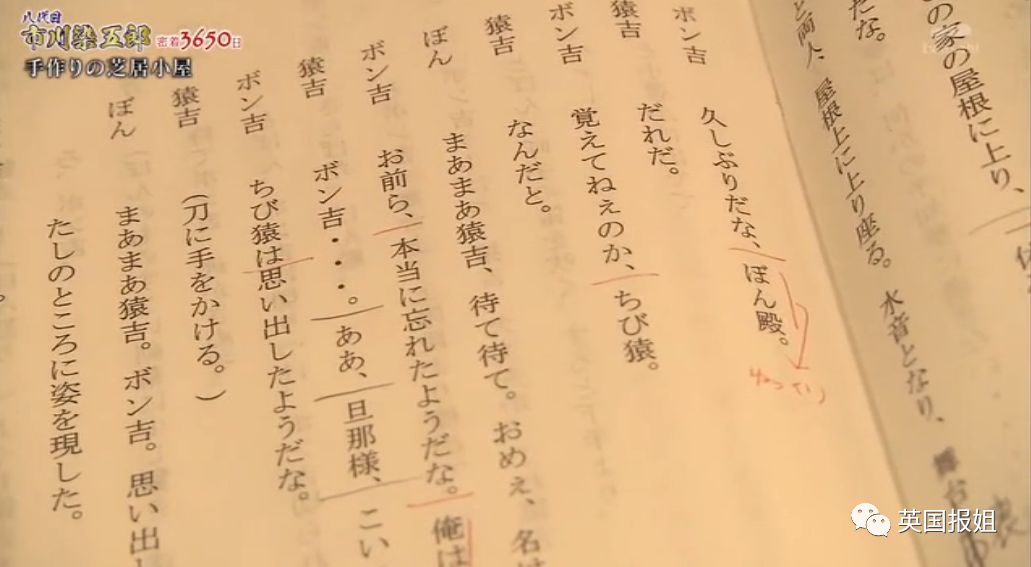 八代目
市川染五郎 密着3650日
手作りの芝居小屋
の家の屋根に上り、
だな。
と両人、屋根上に上り座る。水音となり、舞台
ボン吉 久しぶりだな、ぽん殿。
ゆっくり
猿吉 だれだ。
ボン吉 覚えてねぇのか、ちび猿。
猿吉 なんだと。
ぽん まあまあ猿吉、待て待て。おめぇ、名は
ボン吉 お前ら、本当に忘れたようだな。俺は
猿吉 ボン吉・・・。ああ、旦那様、こい
ボン吉 ちび猿は思い出したようだな。
猿吉 (刀に手をかける。)
ぽん まあまあ猿吉。ボン吉。思い出し
たしのところに姿を現した。
英国报姐